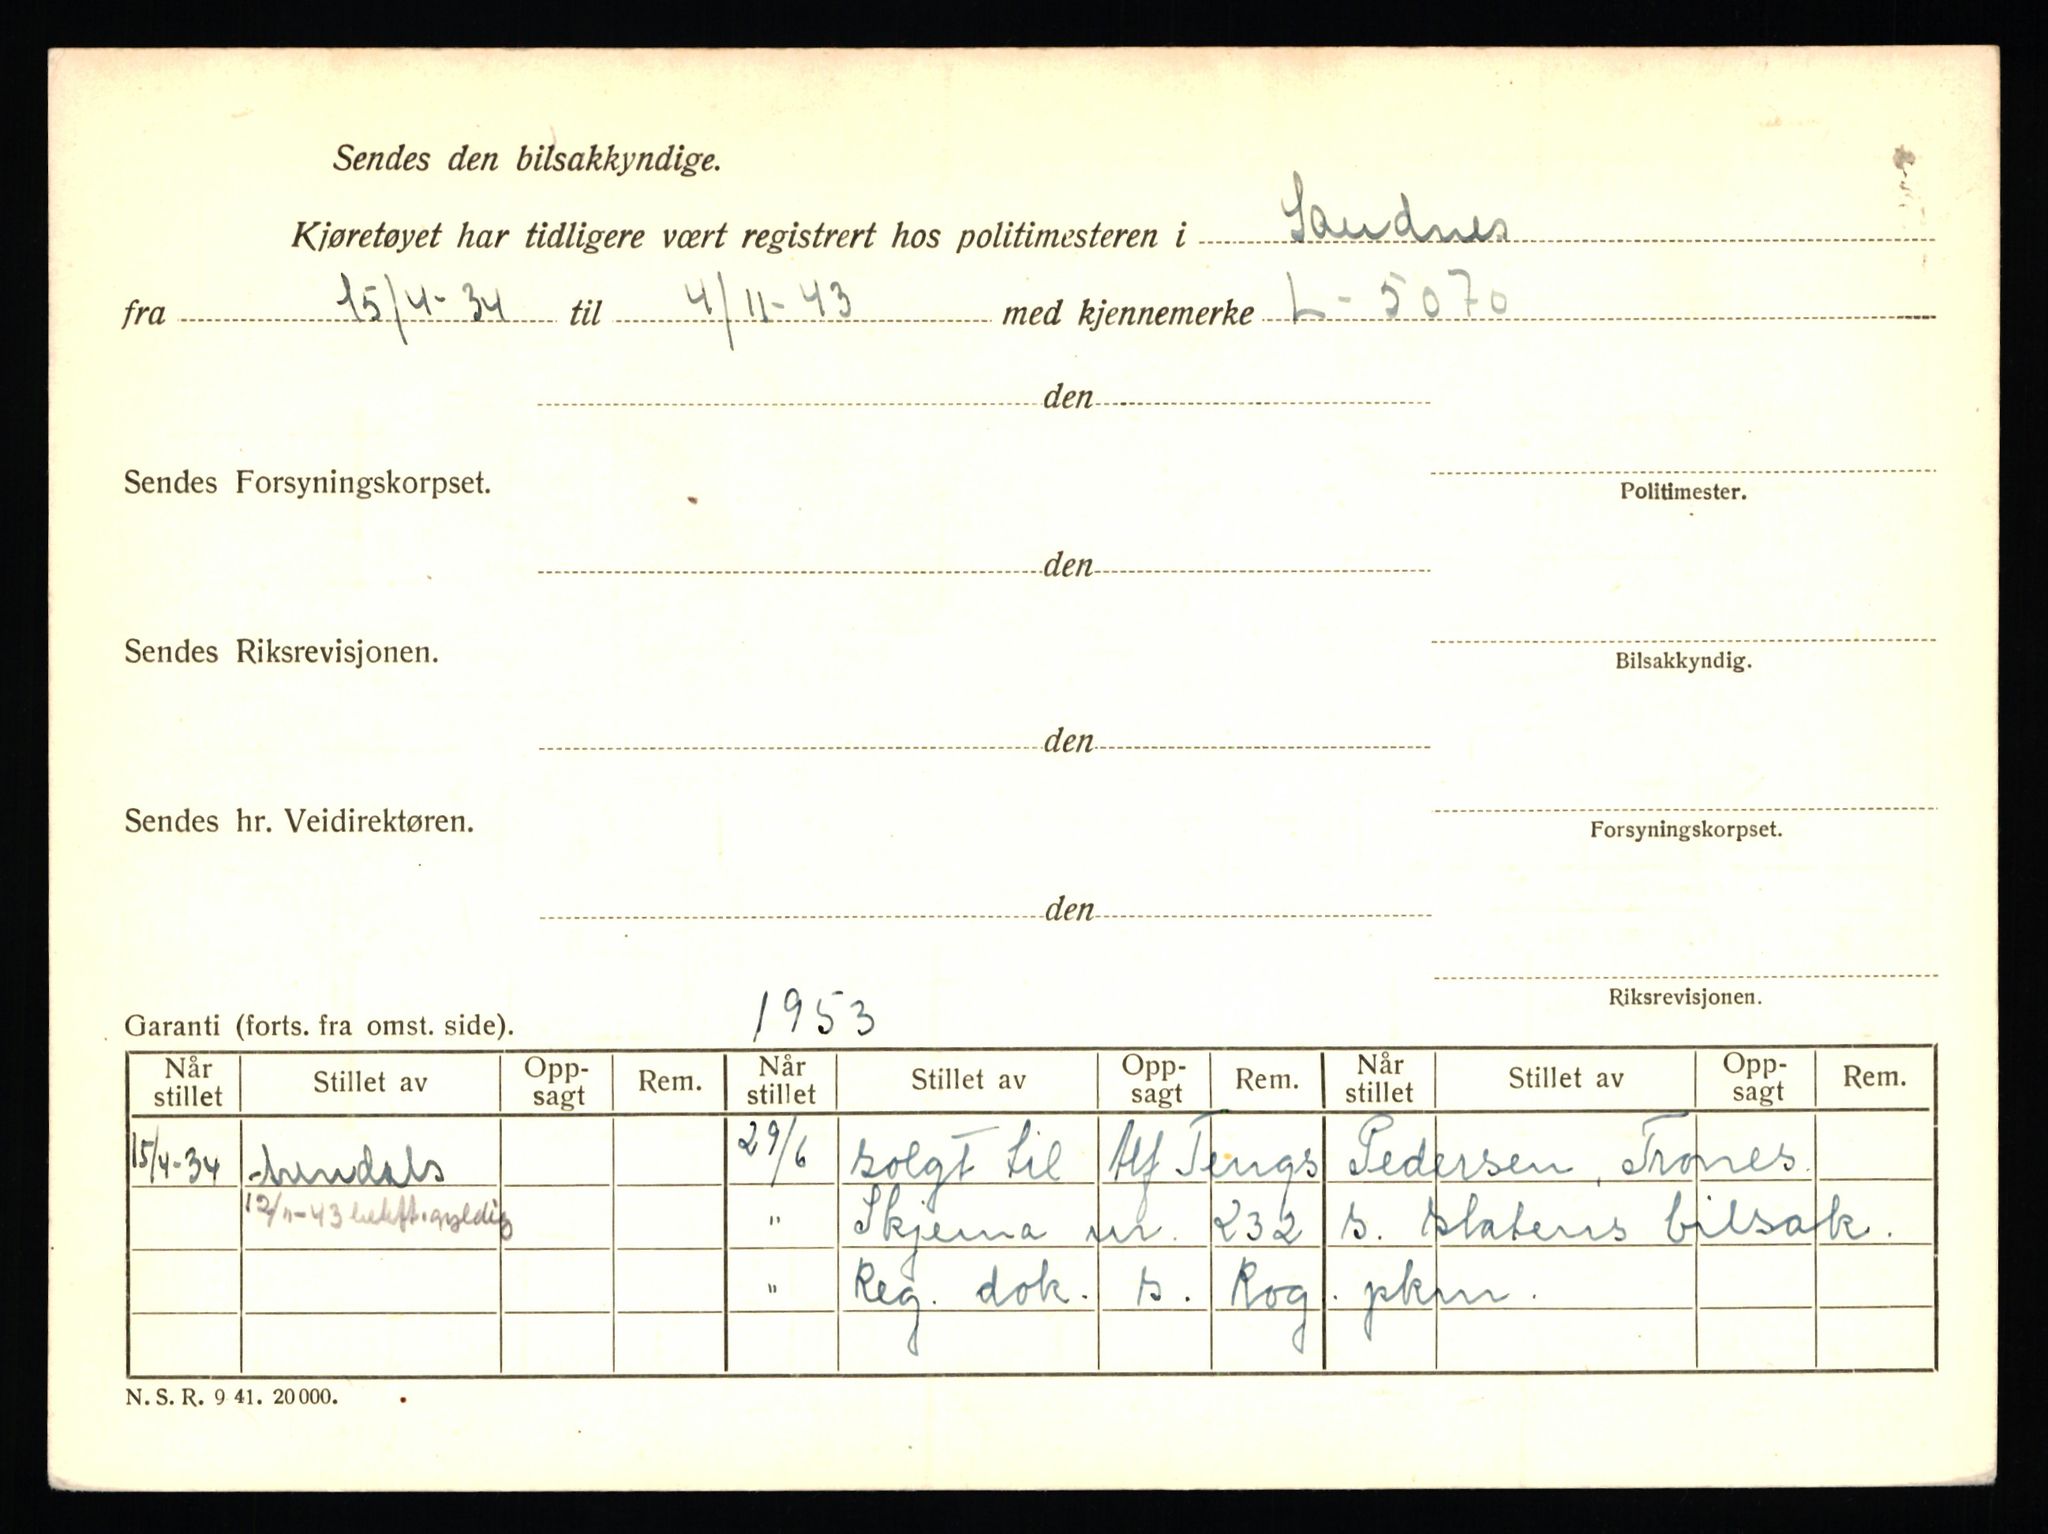 Sendes den bilsakkyndige.
Kjøretøyet har tidligere vært registrert hos politimesteren i Sandnes
fra 15/4-34 til 4/11-43 med kjennemerke L-5070
den
Sendes Forsyningskorpset.
Politimester.
den
Sendes Riksrevisjonen.
Bilsakkyndig.
den
Sendes hr. Veidirektøren.
Forsyningskorpset.
den
Riksrevisjonen.
Garanti (forts. fra omst. side). 1953
Når stillet Stillet av Opp-sagt Rem. Når stillet Stillet av Opp-sagt Rem. Når stillet Stillet av Opp-sagt Rem.
15/4-34 29/6 solgt til Alf Tengs Pedersen, Trones.
12/11-43 gyldig " Skjema nr. 232 s. statens bilsak.
" Reg. dok. s. Rog. pkm.
N. S. R. 9 41. 20 000.